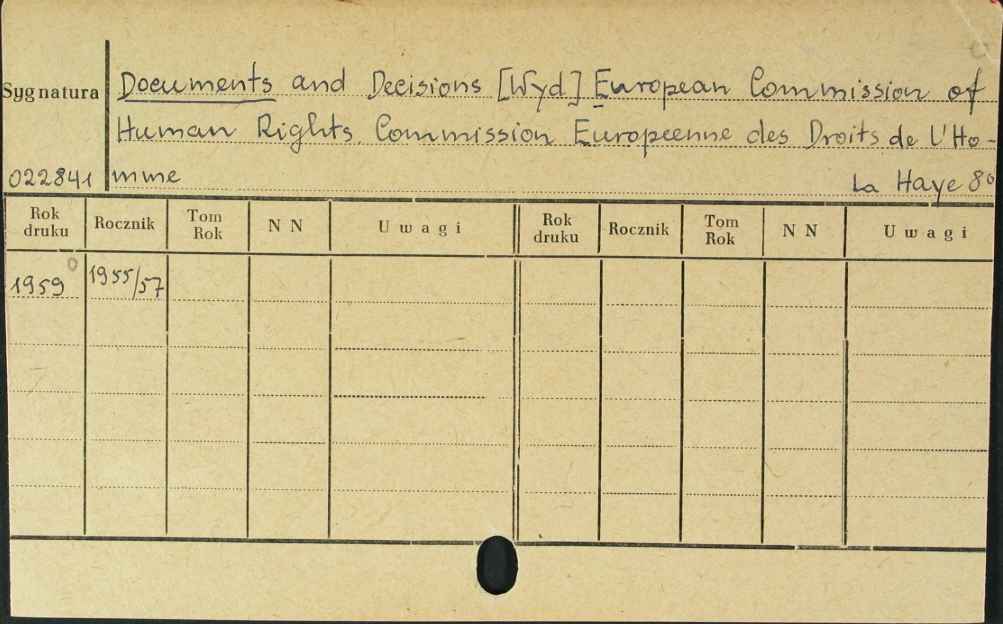 Sygnatura
Documents and Decisions [Wyd] European Commission of
Human Rights. Commission Europeenne des Droits de L'Ho-
022841 mme La Haye 8°
Rok druku Rocznik Tom Rok N N Uwagi Rok druku Rocznik Tom Rok N N Uwagi
1959 1955/57